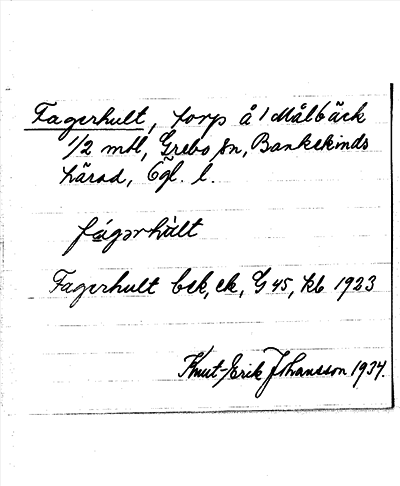 Fagerhult, torp å 1 Målbäck
1/2 mtl, Grebo sn, Bankekinds
härad, Ögl. l.
fágərhùlt
Fagerhult bsk, ek, G 45, kb 1923
Knut-Erik Johansson 1934.